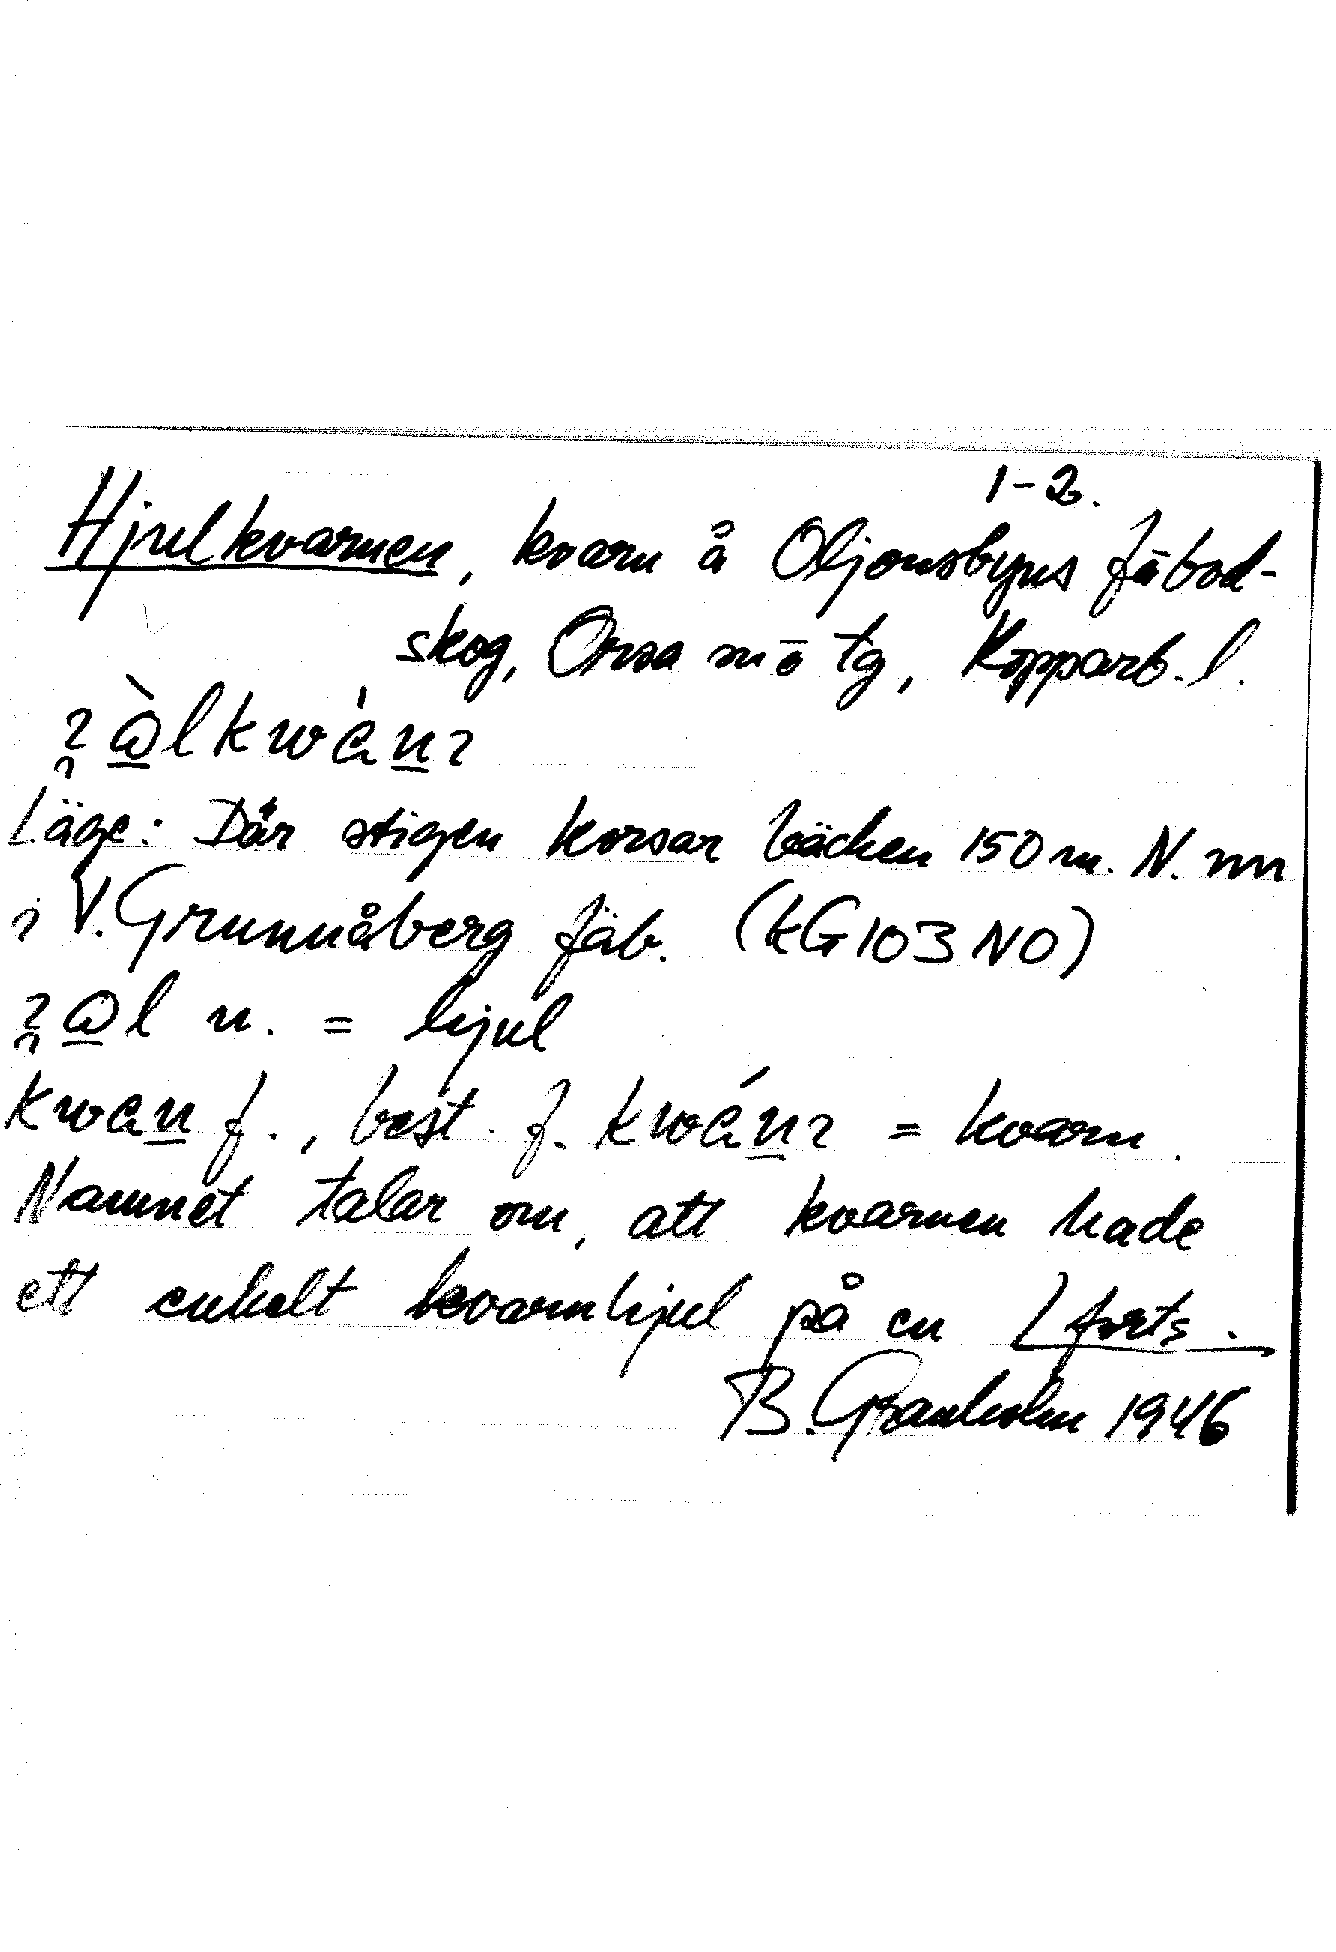 1-2.
Hjulkvarnen, kvarn å Oljonsbyns fäbod-
skog, Orsa sn o tg, Kopparb. l.
Läge: Där stigen korsar bäcken 150 m. N. om
V. Grunnåberg fäb. (kG103NO)
n. = hjul
f., best. f. = kvarn.
Namnet talar om, att kvarnen hade
ett enkelt kvarnhjul på en forts.
B. Granholm 1946